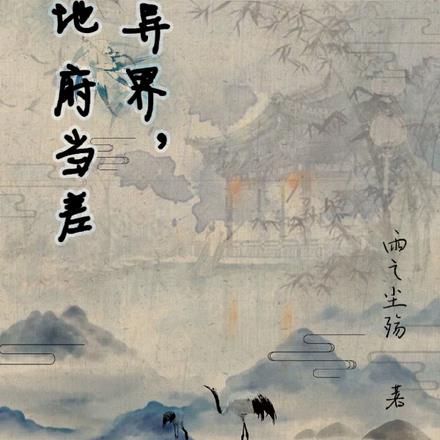 异界，
地府当差
雨之尘殇 著